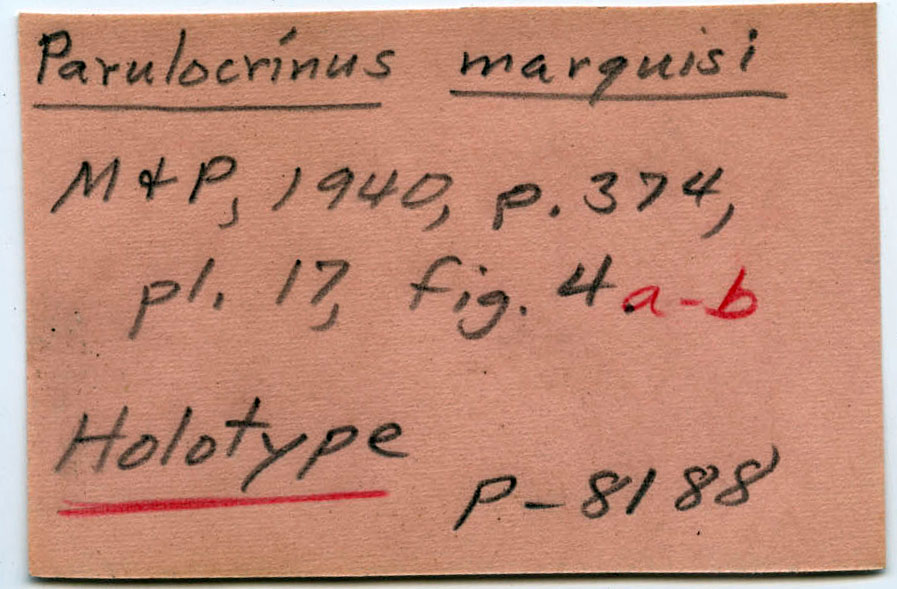 Parulocrinus marquisi
M & P, 1940, p. 374,
pl. 17, fig. 4 a-b
Holotype
P-8188